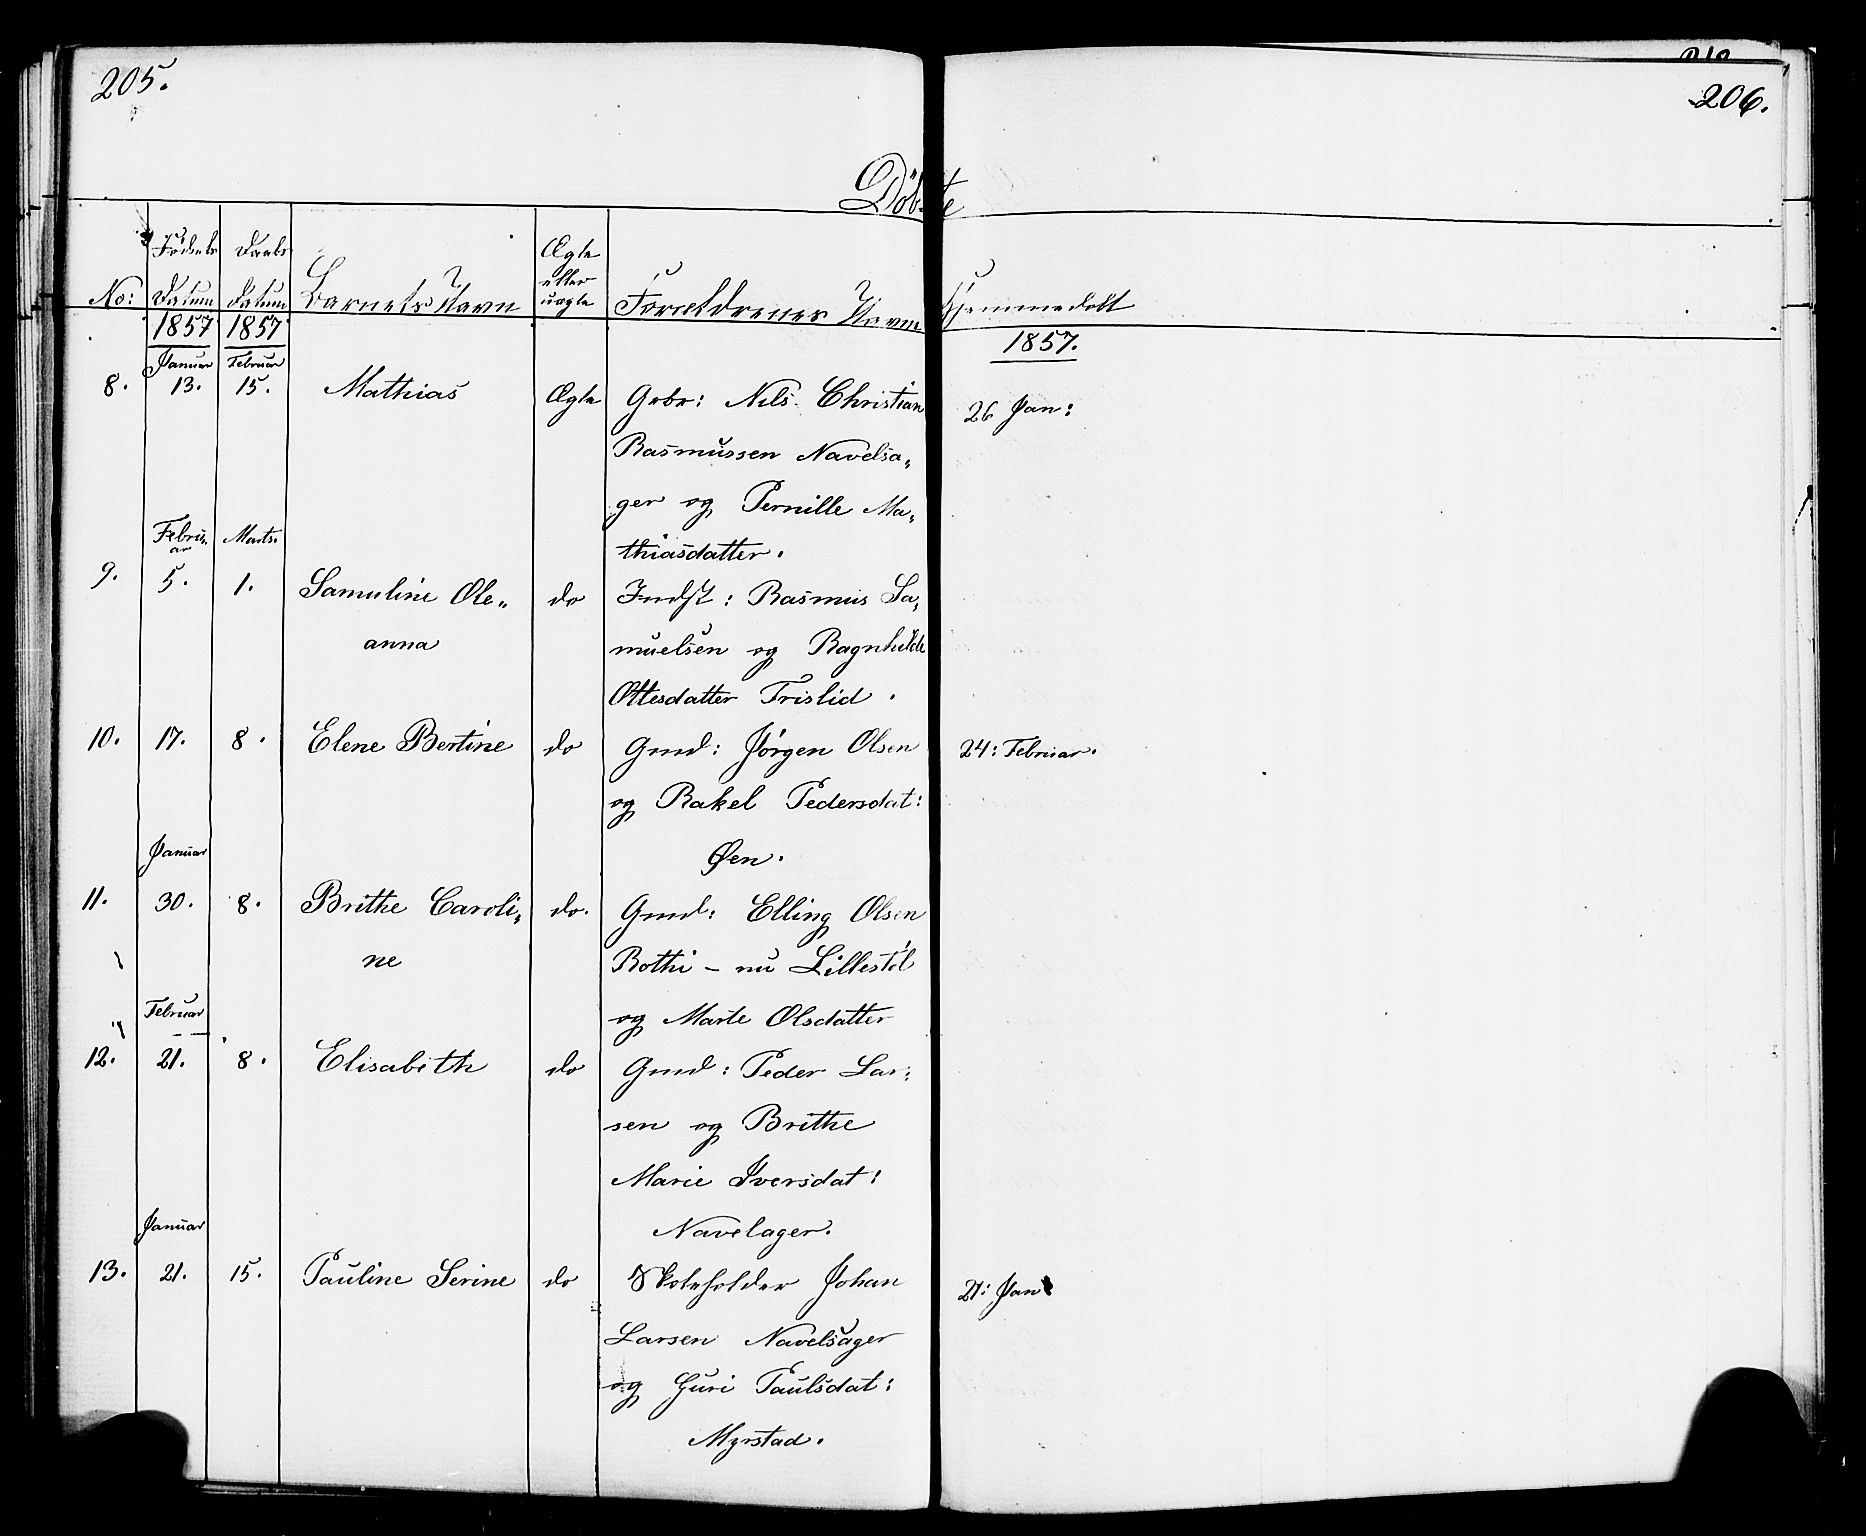 205.
206.
Döbte
No:
Födsels Datum
Daabs Datum
Barnets Navn
Ægte eller uægte
Forældrenes Navn
Hjemmedøbt
1857 1857 1857.
Januar Februar
8. 13. 15. Mathias Ægte Gbr: Nils Christian 26 Jan:
Rasmussen Navelsa„
ger og Pernille Ma„
Febru„ar Marts. thiasdatter.
9. 5. 1. Samuline Ole„ do Indst: Rasmus Sa„
anna muelsen og Ragnhilde
Ottesdatter Frislid.
10. 17. 8. Elene Bertine do Gmd: Jørgen Olsen 24: Februar.
og Rakel Pedersdat:
Januar Øen.
11. 30. 8. Brithe Caroli„ do. Gmd: Elling Olsen
ne Rothi – nu Lillestøl
Februar og Marte Olsdatter
12. 21. 8. Elisabeth do Gmd: Peder Lar„
sen og Brithe
Marie Iversdat:
Januar Navelsager.
13. 21. 15. Pauline Serine do Skoleholder Johan 21: Jan
Larsen Navelsager
og Guri Paulsdat:
Myrstad.